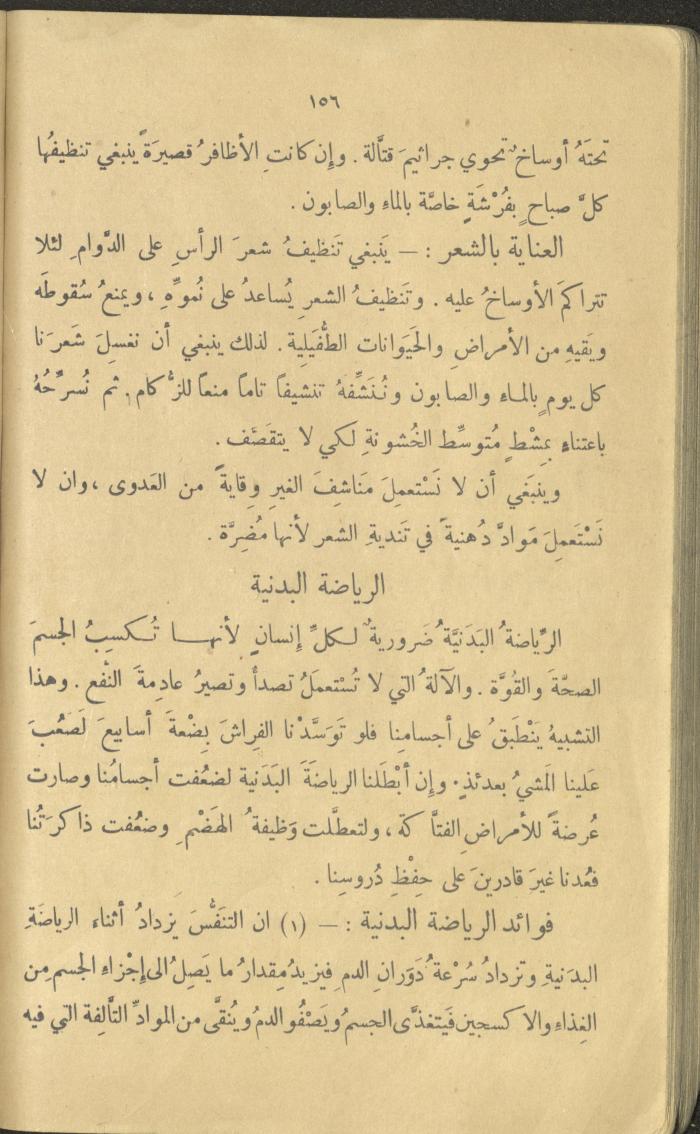 ١٥٦
تحتَهُ أوساخٌ تحوي جراثيمَ قتَّالة . وإِن كانتِ الأظافرُ قصيرَةً ينبغي تنظيفُها
كلَّ صباحٍ بفُرْشَةٍ خاصَّة بالماءِ والصابون .
العناية بالشعر : — يَنبغي تَنظيفُ شعرَ الرأسِ على الدَّوامِ لئلا
تتراكمَ الأوساخُ عليه . وتَنظيفُ الشعرِ يُساعدُ على نُموِّهِ ، ويمنعُ سُقوطَه
ويَقيهِ من الأمراضِ والحَيَوانات الطُّفَيلِية . لذلك ينبغي أن نغسلَ شَعرَنا
كل يومٍ بالماءِ والصابون ونُنَشِّفهُ تنشيفاً تاماً منعاً للزُّكام . ثم نُسرِّحُهُ
باعتناءٍ بمِشْطٍ مُتوسِّط الخُشونةِ لكي لا يتقصَّف .
وينبَغي أن لا نَسْتعملَ مَناشِفَ الغيرِ وِقايةً من العَدوى ، وان لا
نَسْتَعمِلَ مَوادَّ دُهنيةً في تَنديةِ الشعر لأنها مُضِرَّة .
الرياضة البدنية
الرِّياضةُ البَدَنيَّةُ ضَروريةٌ لكلِّ إِنسانٍ لأنها تُكسِبُ الجسمَ
الصحَّةَ والقُوَّة . والآلةُ التي لا تُسْتعمَلُ تصدأُ وتصيرُ عادِمةَ النَّفع . وهذا
التشبيهُ يَنْطَبقُ على أجسامِنا فلو تَوَسَّدْنا الفِراشَ بِضْعةَ أسابيعَ لَصَعُبَ
عَلينا المَشيُ بعدئذٍ . وإِن أبْطَلنا الرياضَةَ البَدَنية لضعُفت أجسامُنا وصارت
عُرضةً للأمراضِ الفتَّاكة ، ولتعطَّلت وَظيفةُ الهَضْمِ وضعُفت ذاكرَتُنا
فعُدنا غيرَ قادرينَ على حِفْظِ دُروسِنا .
فوائد الرياضة البدنية : — (١) ان التنَفُّسَ يزدادُ أثناء الرياضَةِ
البدَنيةِ وتزدادُ سُرْعةُ دَوَرانِ الدمِ فيزيدُ مِقدارُ ما يَصِلُ الى إِجْزاءِ الجسمِ مِن
الغِذاءِ والاكسجين فَيَتغذَّى الجسمُ ويَصْفُو الدمُ ويُنقَّى من الموادِّ التَّالِفة التي فيه